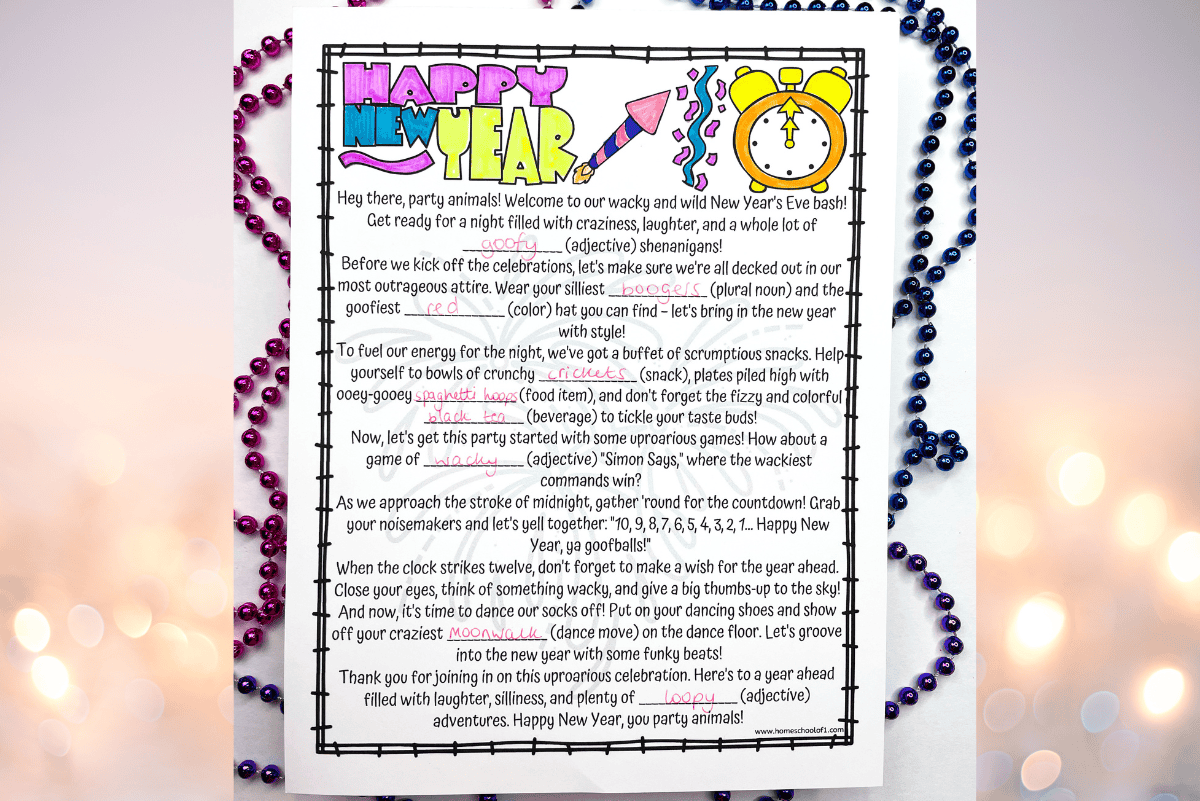 HAPPY
NEW YEAR
Hey there, party animals! Welcome to our wacky and wild New Year's Eve bash!
Get ready for a night filled with craziness, laughter, and a whole lot of
goofy (adjective) shenanigans!
Before we kick off the celebrations, let's make sure we're all decked out in our
most outrageous attire. Wear your silliest boogers (plural noun) and the
goofiest red (color) hat you can find – let's bring in the new year
with style!
To fuel our energy for the night, we've got a buffet of scrumptious snacks. Help
yourself to bowls of crunchy crickets (snack), plates piled high with
ooey-gooey spaghetti hoops (food item), and don't forget the fizzy and colorful
black tea (beverage) to tickle your taste buds!
Now, let's get this party started with some uproarious games! How about a
game of wacky (adjective) "Simon Says," where the wackiest
commands win?
As we approach the stroke of midnight, gather 'round for the countdown! Grab
your noisemakers and let's yell together: "10, 9, 8, 7, 6, 5, 4, 3, 2, 1... Happy New
Year, ya goofballs!"
When the clock strikes twelve, don't forget to make a wish for the year ahead.
Close your eyes, think of something wacky, and give a big thumbs-up to the sky!
And now, it's time to dance our socks off! Put on your dancing shoes and show
off your craziest Moonwalk (dance move) on the dance floor. Let's groove
into the new year with some funky beats!
Thank you for joining in on this uproarious celebration. Here's to a year ahead
filled with laughter, silliness, and plenty of loopy (adjective)
adventures. Happy New Year, you party animals!
www.homeschoolof1.com